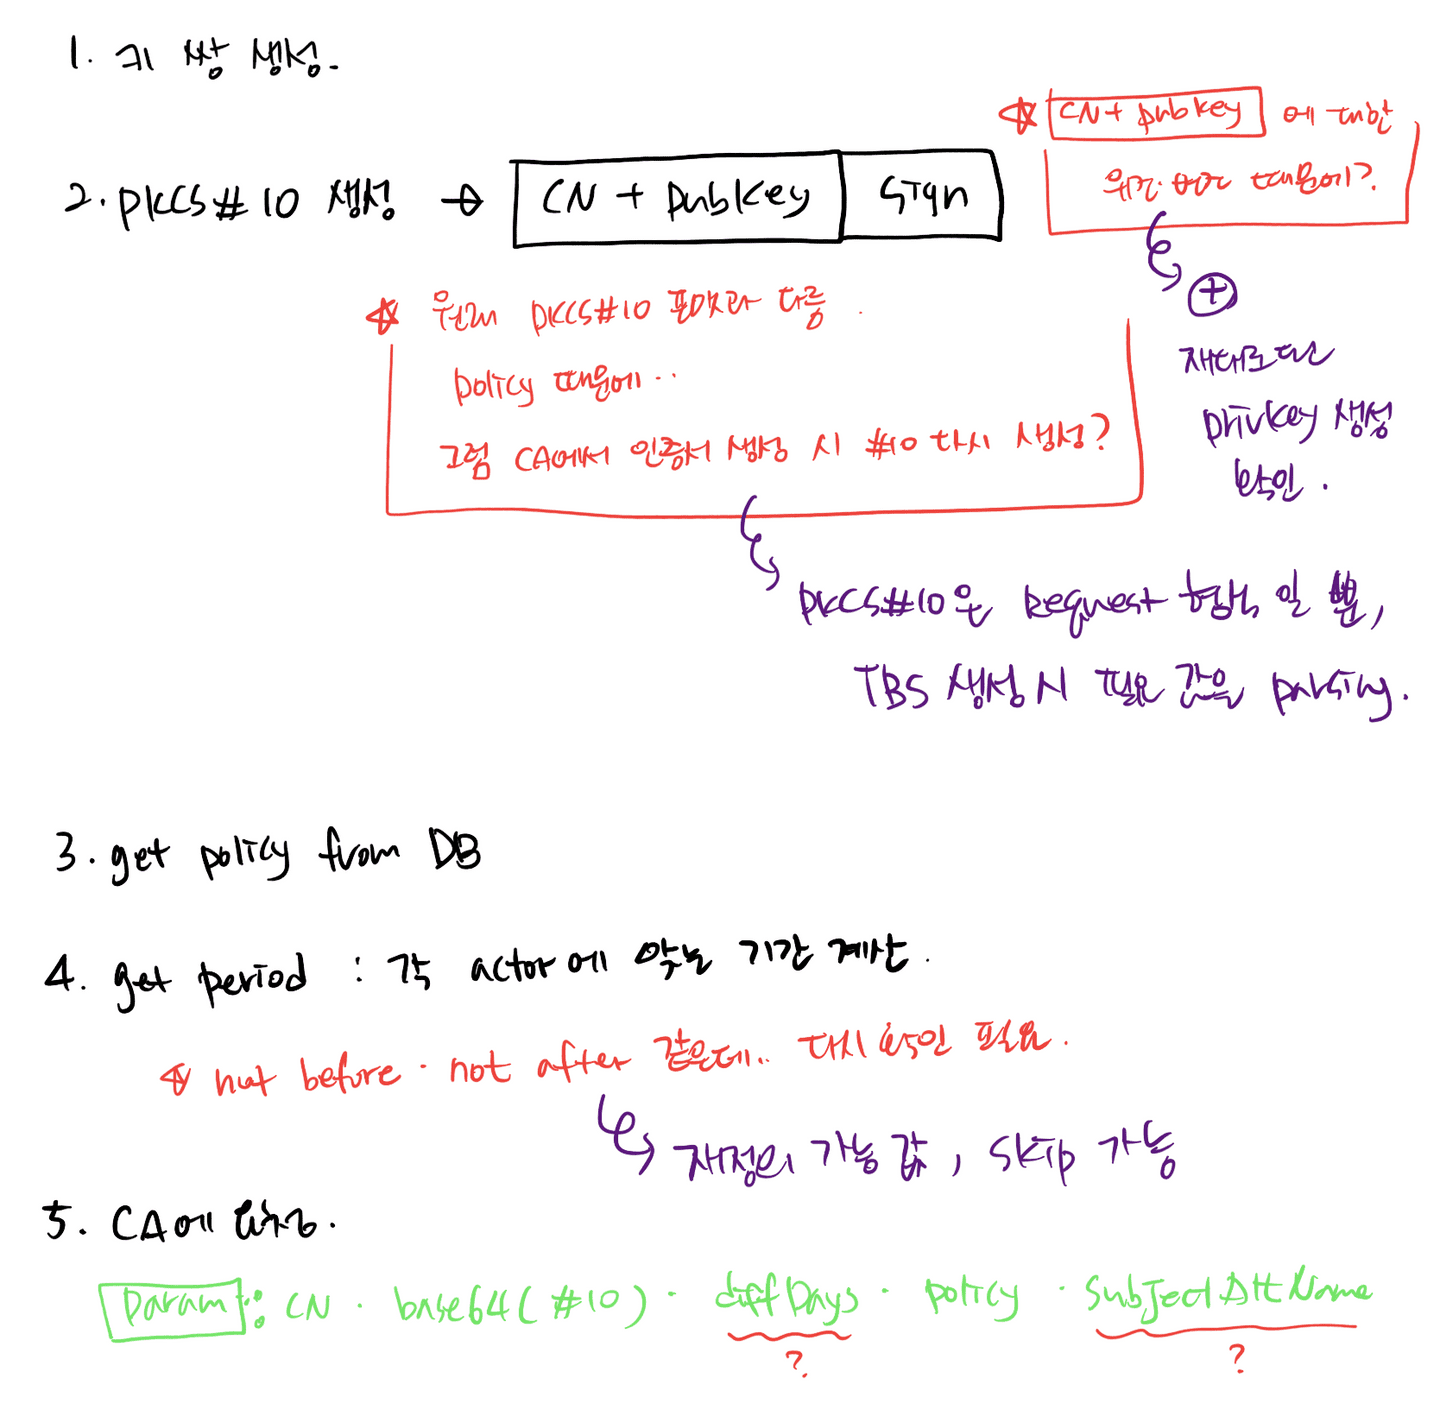 1. 키 쌍 생성.
2. PKCS#10 생성 → CN + Pubkey Sign
☆ CN + pubkey 에 대한
위조 때문에?
+
재대로 된
Privkey 생성
확인.
☆ 원래 PKCS#10 포맷과 다름.
policy 때문에..
그럼 CA에서 인증서 생성 시 #10 다시 생성?
PKCS#10은 Request 형식 일 뿐,
TBS 생성 시 필요 값을 parsing.
3. get policy from DB
4. get period : 각 actor에 맞는 기간 계산.
☆ not before · not after 같은데.. 다시 확인 필요.
재정의 가능 값, skip 가능
5. CA에 요청.
Param : CN · base64(#10) · diffDays · policy · SubjectAltName
? ?